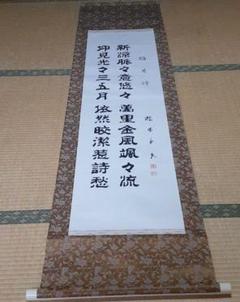 新涼脈々意悠々 萬里金風颯々流
仰見光々三五月 依然皎潔惹詩愁